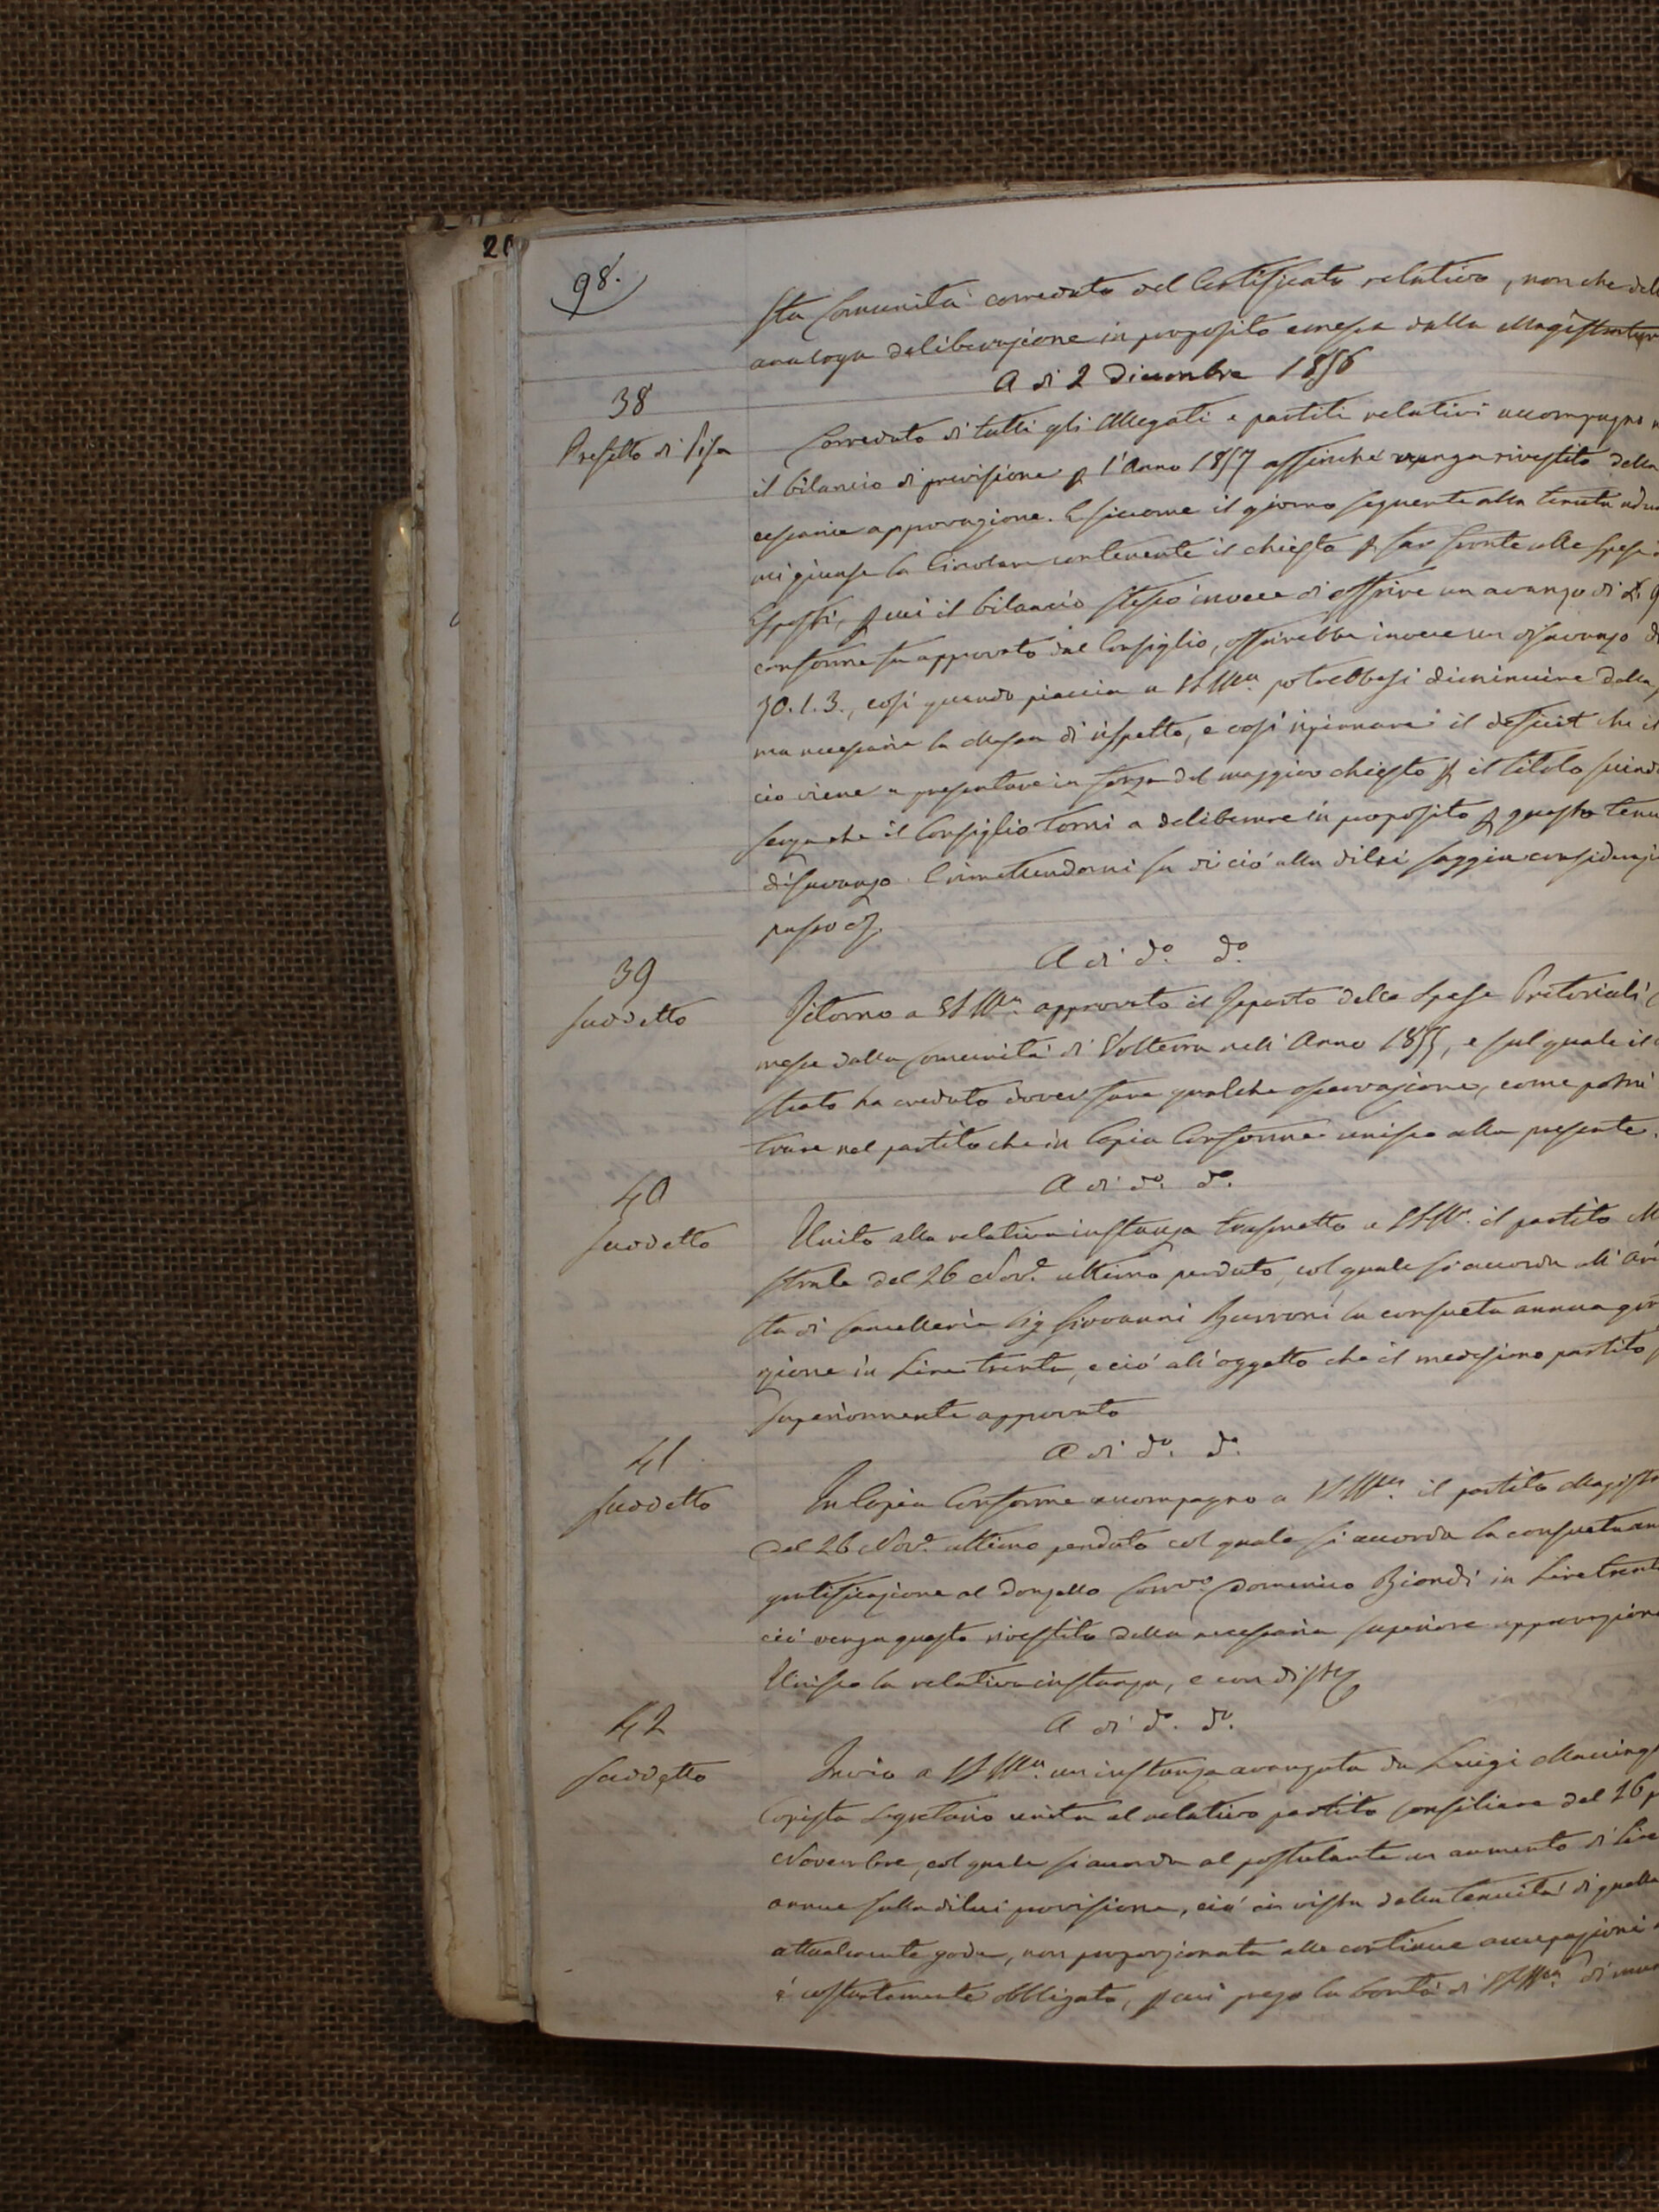 20
98.
sta Comunità corredato del Certificato relativo, non che dell
analoga deliberazione in proposito emessa dalla Magistratura
A dì 2 Dicembre 1856
38
Prefetto di Pisa
Corredato di tutti gli Allegati e partiti relativi accompagno
il bilancio di previsione p l'Anno 1857 affinchè venga rivestito della
cessaria approvazione. E siccome il giorno seguente alla tenuta adun
mi giunse la Circolare contenente il chiesto p far fronte alle spese
Esposti, p cui il bilancio stesso invece di offrire un avanzo di £. 9
conforme fu approvato dal Consiglio, offrirebbe invece un disavanzo di
30.1.3., così quando piaccia a VS Illma. potrebbesi diminuire dalla
ma necessaria la Massa di rispetto, e così ripianare il deficit che il
cio viene a presentare in forza del maggior chiesto p il titolo
senza che il Consiglio torni a deliberare in proposito p questo tenu
disavanzo. E rimettendomi su di ciò alla di lei saggia considerazi
passo
39
A dì do. do.
suddetto
Ritorno a VS Illma. approvato il Reparto delle Spese Pretoriali
messe dalla Comunità di Volterra nell'Anno 1855, e sul quale il
strato ha creduto dover fare qualche osservazione, come potrà
trare nel partito che in Copia Conforme unisco alla presente.
40
A dì do. do.
suddetto
Unito alla relativa instanza trasmetto a VS Illma. il partito M
strale del 26 Nove. ultimo perduto, col quale si accorda all'
sta di Cancelleria Sig Giovanni Burroni la consueta annua
zione in Lire trenta, e ciò all'oggetto che il medesimo partito
superiormente approvato
41
A dì do. do.
suddetto
In Copia Conforme accompagno a VS Illma. il partito Magist
del 26 Nove. ultimo perduto col quale si accorda la consueta an
gratificazione al Donzello Domenico Biondi in Lire trent
ciò venga questo rivestito della necessaria superiore approvazione
Unisco la relativa instanza, e con
42
A dì do. do.
suddetto
Invio a VS Illma. un'instanza avanzata da Luigi
Copista Segretario unita al relativo partito Consiliare del 26 p
Novembre, col quale si accorda al postulante un aumento di Lire
annue sulla di lui provisione, ciò in vista della tenuità di quella
attualmente gode, non proporzionata alle continue occupazioni
è costantemente obbligato, p cui prego la bontà di VS Illma di